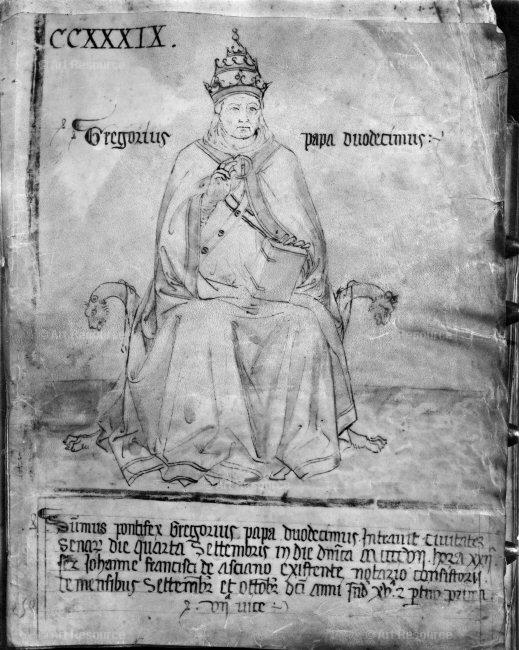 CCXXXIX.
Gregorius papa duodecimus
Sūmus pontifex Gregorius papa duodecimus Intravit Civitatē
Senar die quarta Settembris in die dnica M CCCC VII hora XXII
Johanne francisci de asciano existente notario consistorii
mensibus Settembr et ottobr dci anni Ind XV
VII